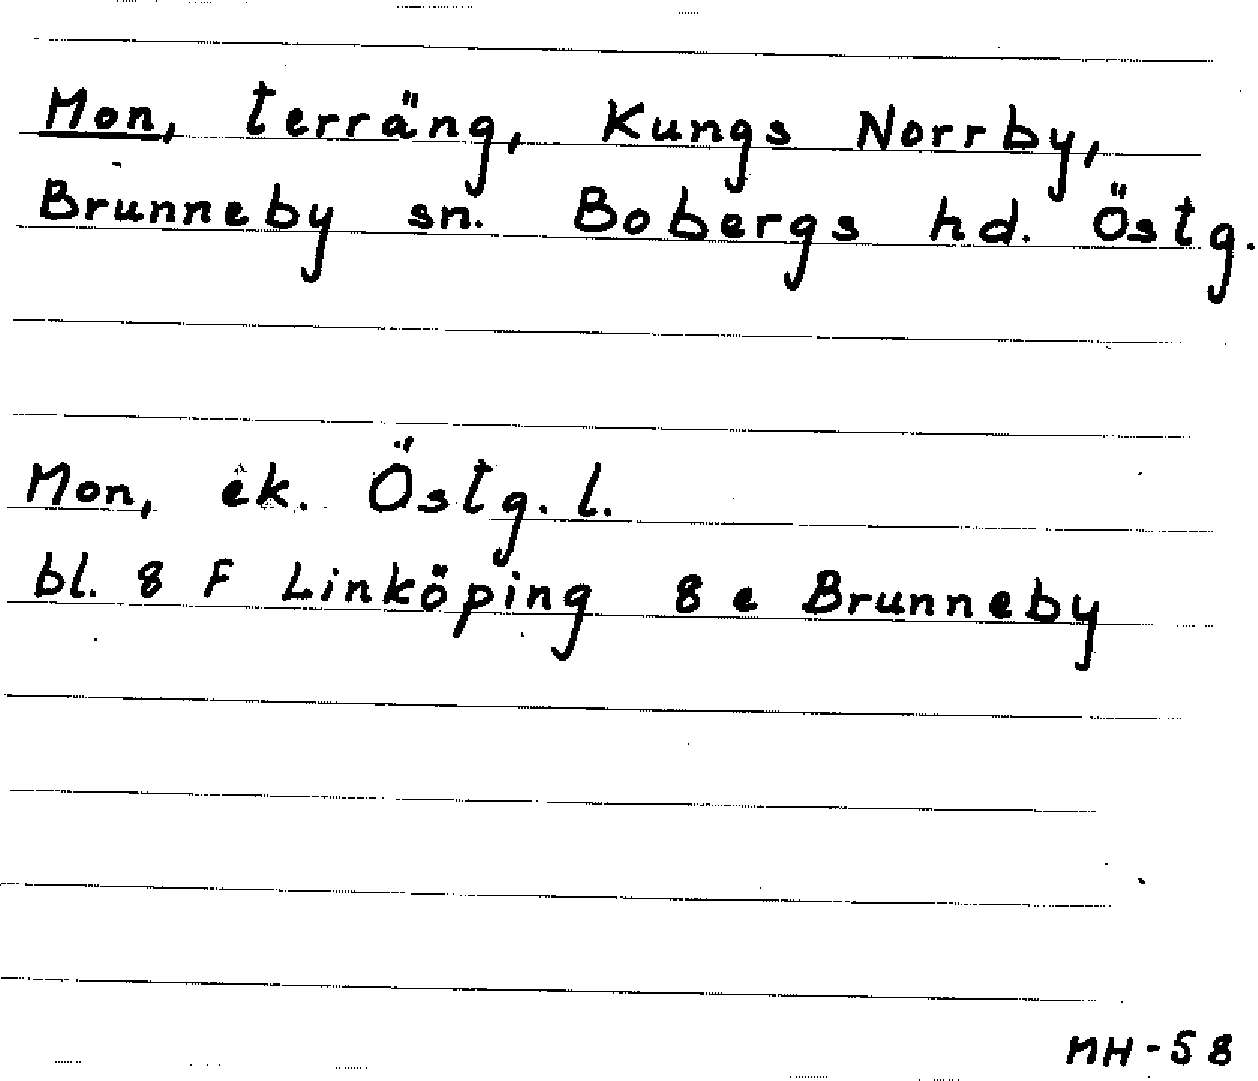 Mon, terräng, Kungs Norrby,
Brunneby sn. Bobergs hd. Östg.
Mon, ek. Östg. l.
bl. 8 F Linköping 8 e Brunneby
MH-58